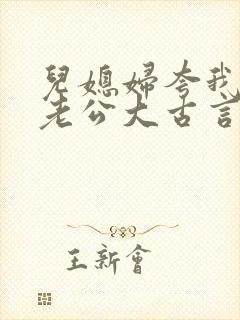 兒媳婦夸我
老公大古言
王新會